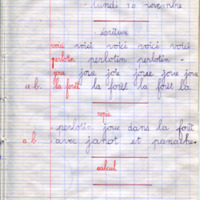 lundi 30 novembre
écriture
voici voici voici voici voici
perlotin perlotin perlotin -
joue joue joue joue joue joue
a.b. la forêt la forêt la forêt la
copie
perlotin joue dans la forêt
a.b. avec janot et
calcul